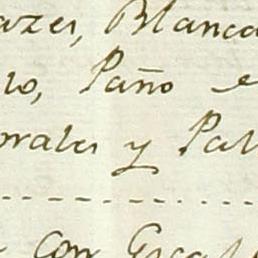 azes, Blanca
lo, Paño e
orales y Pal
con Escal